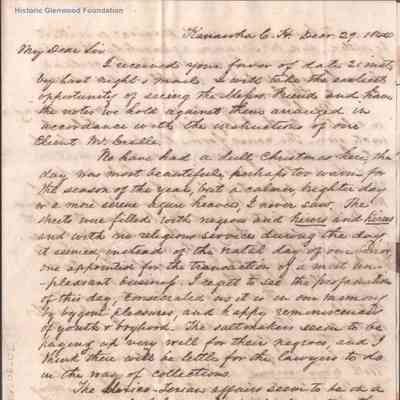 Historic Glenwood Foundation
Kanawha C. H. Decr 29. 1844
My Dear Sir
I received your favor of date 21 inst.
by last night's mail. I will take the earliest
opportunity of seeing the Messrs. Friends and have
the notes we hold against them arranged in
accordance with the instructions of our
Client Mr.
We have had a dull Christmas here, the
day was most beautiful, perhaps too warm for
the season of the year, but a calmer, brighter day
or a more serene heaven, I never saw. The
streets were filled with negroes and hirers and hirees
and with no religious service during the day,
it seemed instead of the natal day of our Savior,
one appointed for the transaction of a most un-
-pleasant business. I regret to see the profanation
of this day, consecrated as it is in our memory
by bygone pleasures, and happy reminiscences
of youth & boyhood. The saltmakers seem to be
paying up very well for their negroes, and I
think there will be little for the lawyers to do
in the way of collections.
The affairs seem to be in a